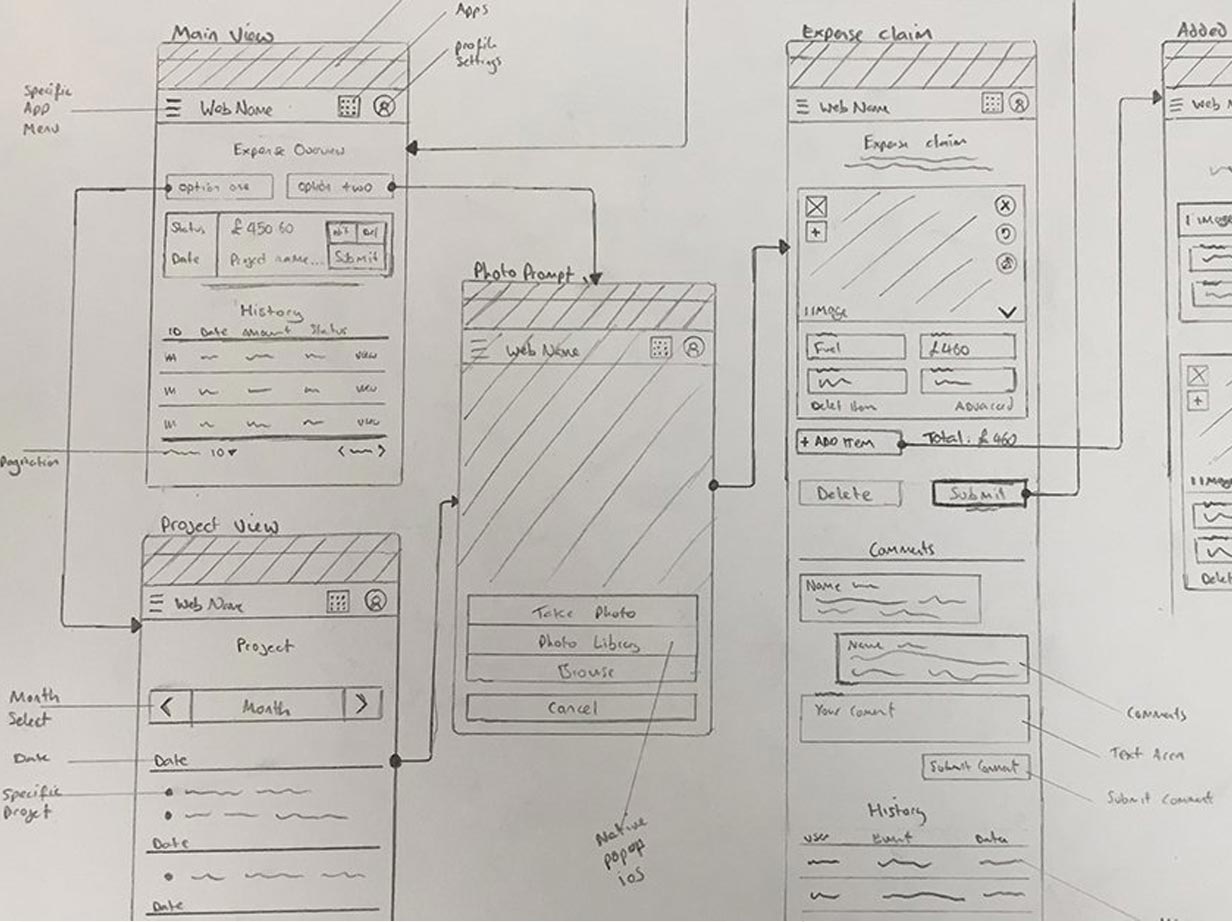 Main View
Apps
profile
Settings
Specific
App
Menu
Web Name
Expense Overview
option one
option two
Status
£450 60
Submit
Date
Project name...
History
ID Date amount Status
view
view
view
10
Pagnation
Project View
Web Name
Project
Month
Select
Month
Date
Date
Specific
Project
Date
Date
Photo Prompt
Web Name
Take Photo
Photo Library
Browse
Cancel
Native
popup
iOS
Expense claim
Web Name
Expense claim
1 IMAGE
Fuel
£460
Delet Item
Advanced
+ ADD ITEM
Total: £460
Delete
Submit
Comments
Name
Name
Comments
Your Coment
Text Area
Submit Coment
Submit Comment
History
User Event Date
Added
Web N
1 IMAGE
1 IMAGE
Delet